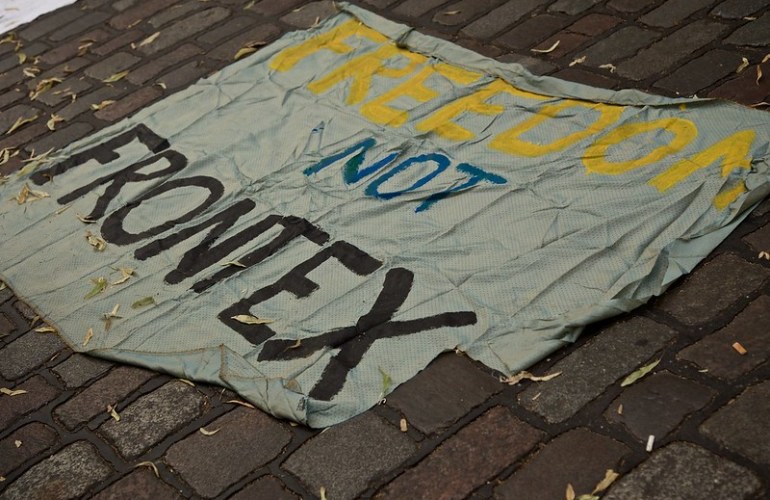 FREEDOM
NOT
FRONTEX